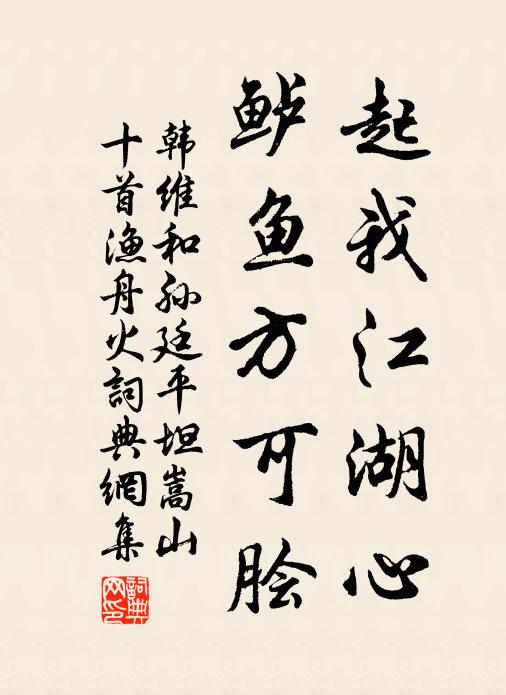 起我江湖心
鲈鱼方可脍
韩维和孙廷平坦嵩山
十首渔舟火詞典網集
詞典
网印